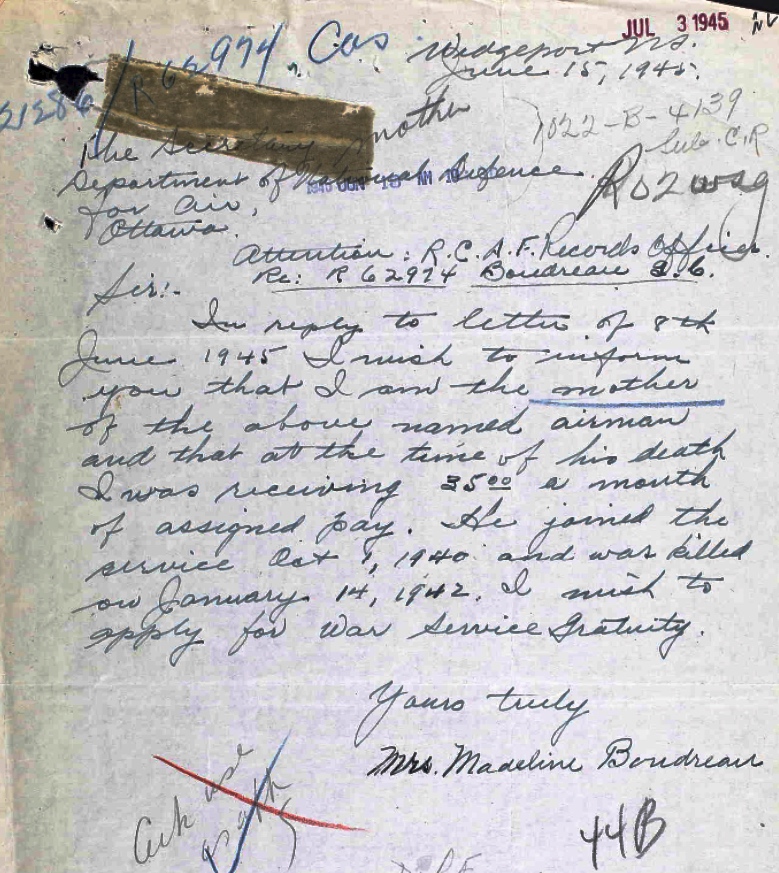 JUL 3 1945
R 62974 Cas
Wedgeport N.S.
June 15, 1945.
21286
mother
1022-B-4139
Sub. C.R
The Secretary
Department of National Defence
for Air,
Ottawa.
Attention: R.C.A.F. Records Officer.
Re: R 62974 Boudreau
Sir:-
In reply to letter of 8th
June 1945 I wish to inform
you that I am the mother
of the above named airman
and that at the time of his death
I was receiving 35⁰⁰ a month
of assigned pay. He joined the
service Oct 1, 1940 and was killed
on January 14, 1942. I wish to
apply for War Service Gratuity.
Yours truly
Mrs. Madeline Boudreau
44B